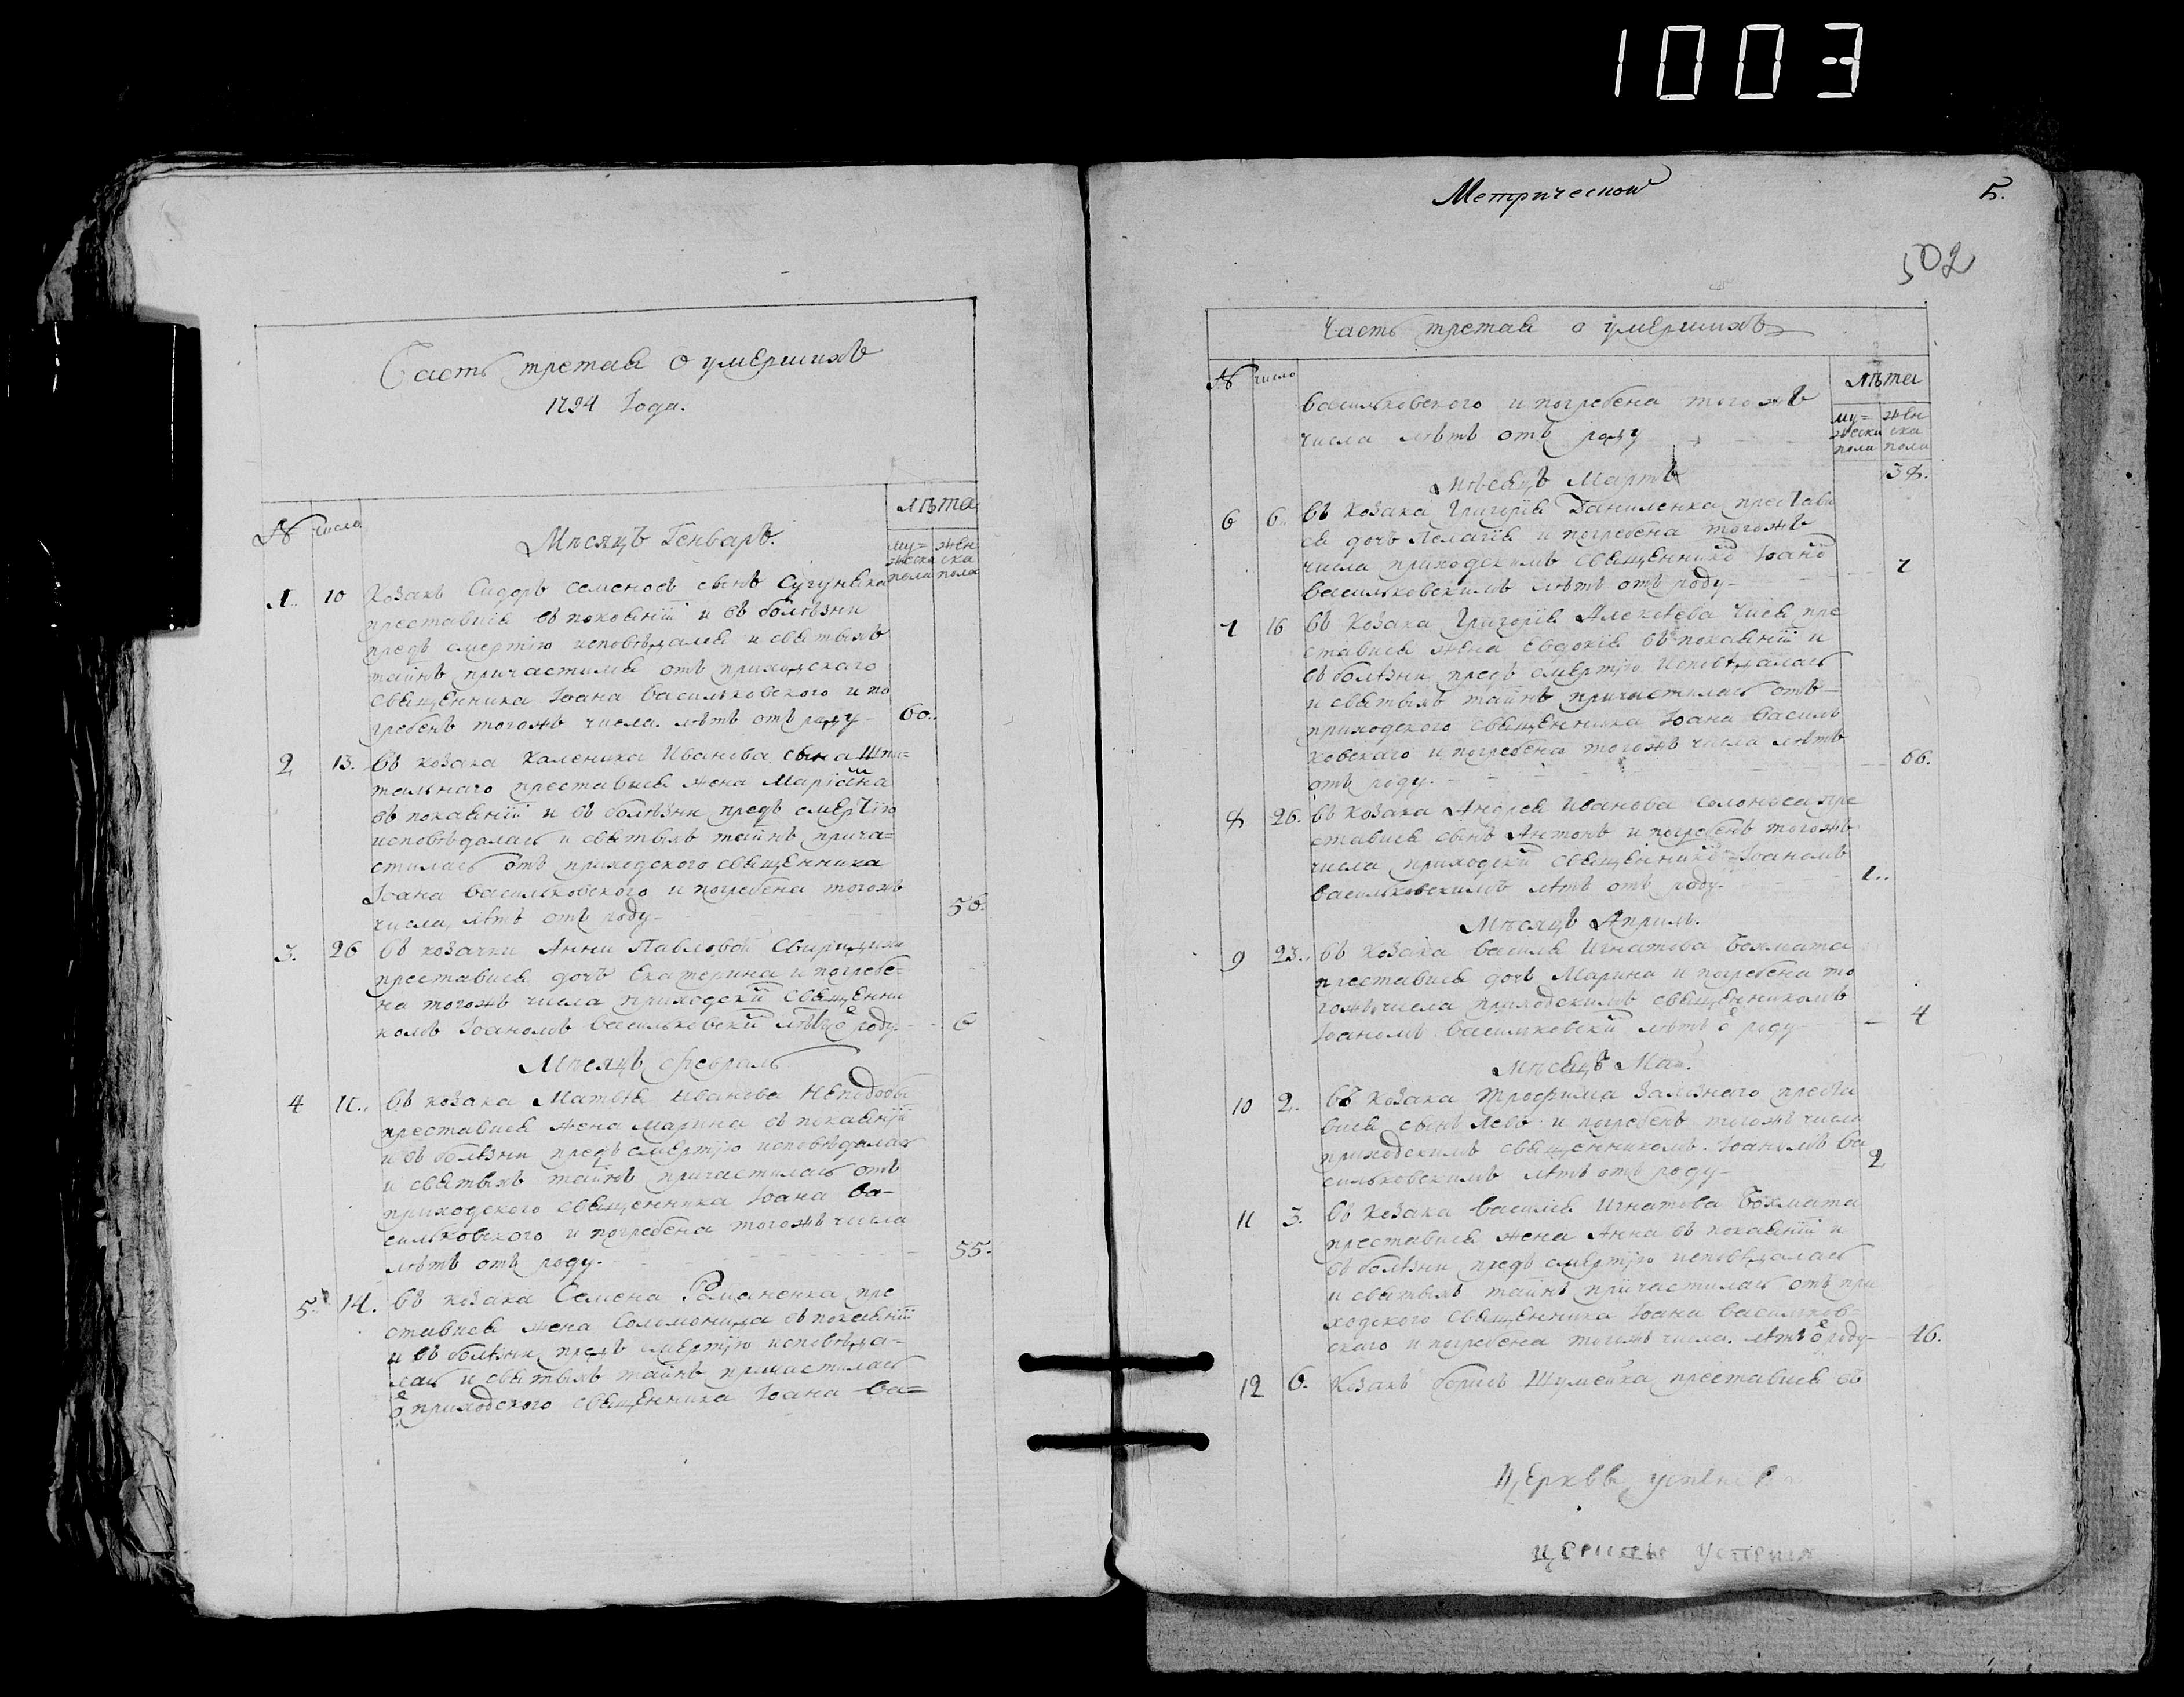 1003
Часть третая о умершихъ
1794 Года.
№ числа
лѣта
Мѣсяцъ Генварь.
му= жен
жеска ска
пола пола
1. 10 Козакъ Сидоръ Семеновъ сынъ
преставися въ покаянїи и въ болѣзни
предъ смертїю исповѣдался и святыхъ
таинъ причастился отъ приходскаго
священника Іоана Васильковского и по
гребенъ тогожъ числа. лѣтъ отъ роду 60.
2 13. въ козака Каленика Иванова сына
преставися жена
въ покаянїи и въ болѣзни предъ смертїю
исповѣдалась и святыхъ таинъ прича=
стилась отъ приходского священника
Іоана Васильковского и погребена тогожъ
числа, лѣтъ отъ роду 56.
3. 26 въ козачки Анни Павловой
преставися дочь Екатерина и погребе=
на тогожъ числа приходскй священни
комъ Іоаномъ Васильковскй лѣтъ ѿ роду 6
Мѣсяцъ Февраль
4 11.. въ козака Матвѣя Иванова Неподобы
преставися жена Марина въ покаянїи
и въ болѣзни предъ смертїю исповѣдалась
и святыхъ таинъ причастилась отъ
приходского священника Іоана Ва-
сильковского и погребена тогожъ числа
лѣтъ отъ роду. 55.
5. 14. въ козака Семена Романенка пре
ставися жена Соломонида въ покаянїи
и въ болѣзни предъ смертїю исповѣда-
лась и святыхъ таинъ причастилась
ѿ приходского священника Іоана Ва=
Метрической 5.
502
Часть третая о умершихъ
№ число
лѣта
Васильковского и погребена тогожъ
числа лѣтъ отъ роду
му= жен
жеска ска
пола пола
38.
мѣсяцъ Мартъ
6 6.. въ козака Григорїя Даниленка престави
ся дочь Пелагїя и погребена тогожъ
числа приходскимъ священнико Іоано
Васильковскимъ лѣтъ отъ роду - 7
7 16 въ козака Григорїя Алексѣева пре
ставися жена Евдокїя въ покаянїи и
въ болѣзни предъ смертїю исповѣдалась
и святыхъ таинъ причастилась отъ-
приходского священника Іоана Василь
ковскаго и погребена тогожъ числа лѣтъ
отъ роду. 66.
8 26. въ козака Андрея Иванова Солоноса пре
ставися сынъ Антонъ и погребенъ тогожъ
числа приходскй священнико Іоаномъ
Васильковскимъ лѣтъ отъ роду. 1..
Мѣсяцъ Априль.
9 23.. въ козака Василя Игнатова Бохмата
преставися дочь Марина и погребена то
гожъ числа приходскимъ священникомъ
Іоаномъ Васильковскй лѣтъ ѿ роду- 4
Мѣсяцъ Маи.
10 2. въ козака Трофима Залѣзнаго преста
вися сынъ Левъ и погребенъ тогожъ числа
приходскимъ священникомъ Іоаномъ Ва
сильковскимъ лѣтъ отъ роду- 2
11 3. въ козака Василя Игнатова Бохмата
преставися жена Анна въ покаянїи и
въ болѣзни предъ смертїю исповѣдалась
и святыхъ таинъ причастилась отъ при
ходского священника Іоана Васильков=
ского и погребена тогожъ числа. лѣтъ ѿ роду- 46.
12 6. Козакъ Борисъ Шумейка преставися въ
церквы
Успения